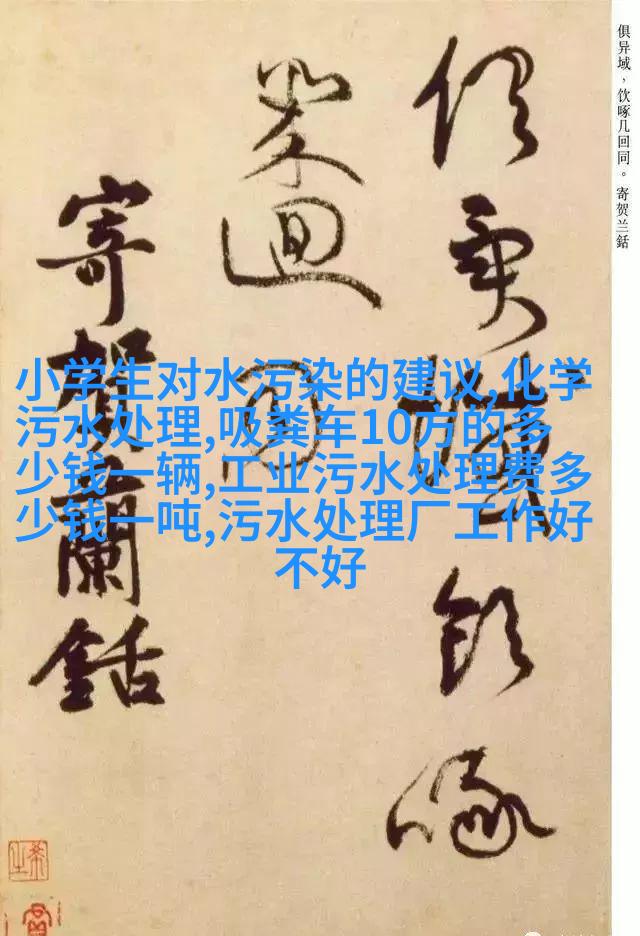 俱异域，饮啄几回同。寄贺兰銛
俱異域飲啄
幾迴同
寄賀蘭銛
小学生对水污染的建议,化学
污水处理,吸粪车10方的多
少钱一辆,工业污水处理费多
少钱一吨,污水处理厂工作好
不好